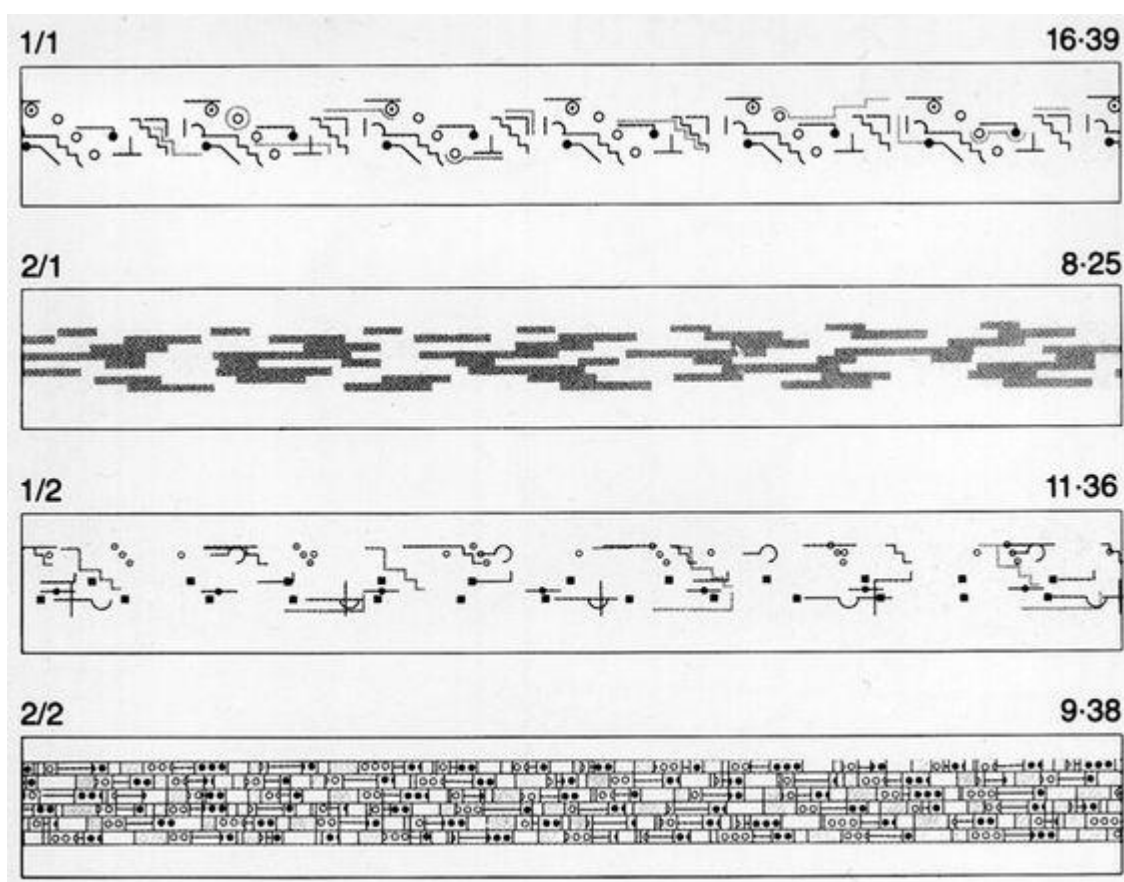 1/1 16·39
2/1 8·25
1/2 11·36
2/2 9·38